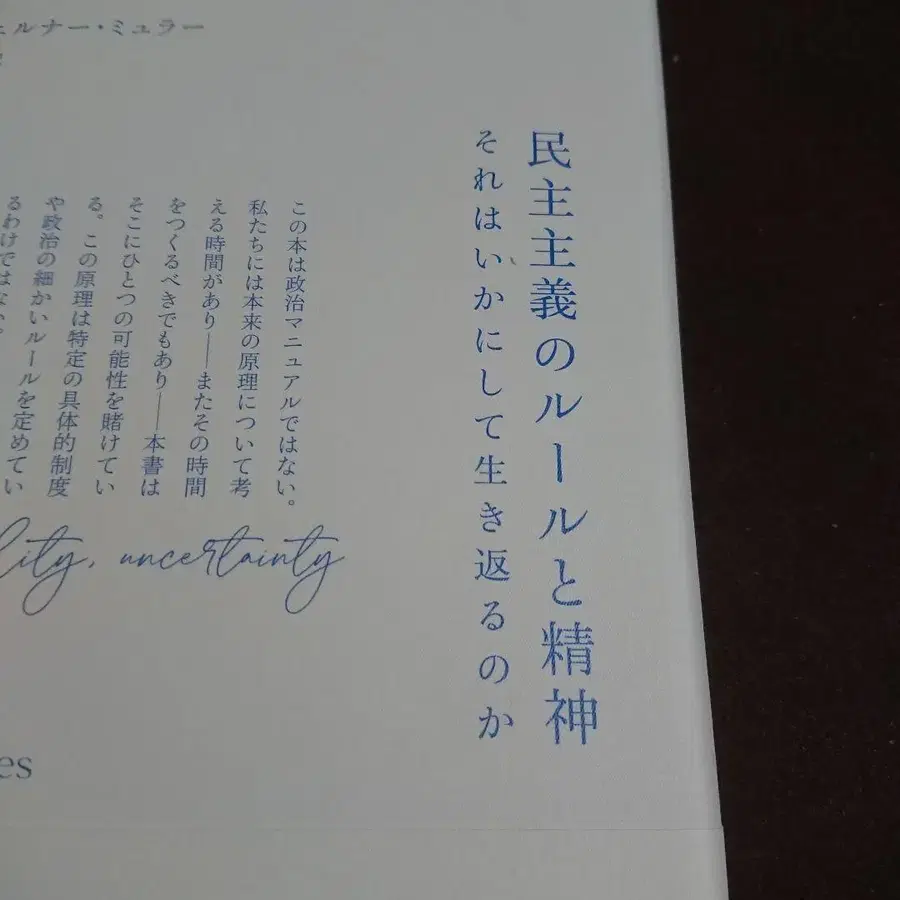 民主主義のルールと精神
それはいかにして生き返るのか
ェルナー・ミュラー
この本は政治マニュアルではない。
私たちには本来の原理について考
える時間があり――またその時間
をつくるべきでもあり――本書は
そこにひとつの可能性を賭けてい
る。この原理は特定の具体的制度
や政治の細かいルールを定めてい
るわけではない。
lity, uncertainty
es